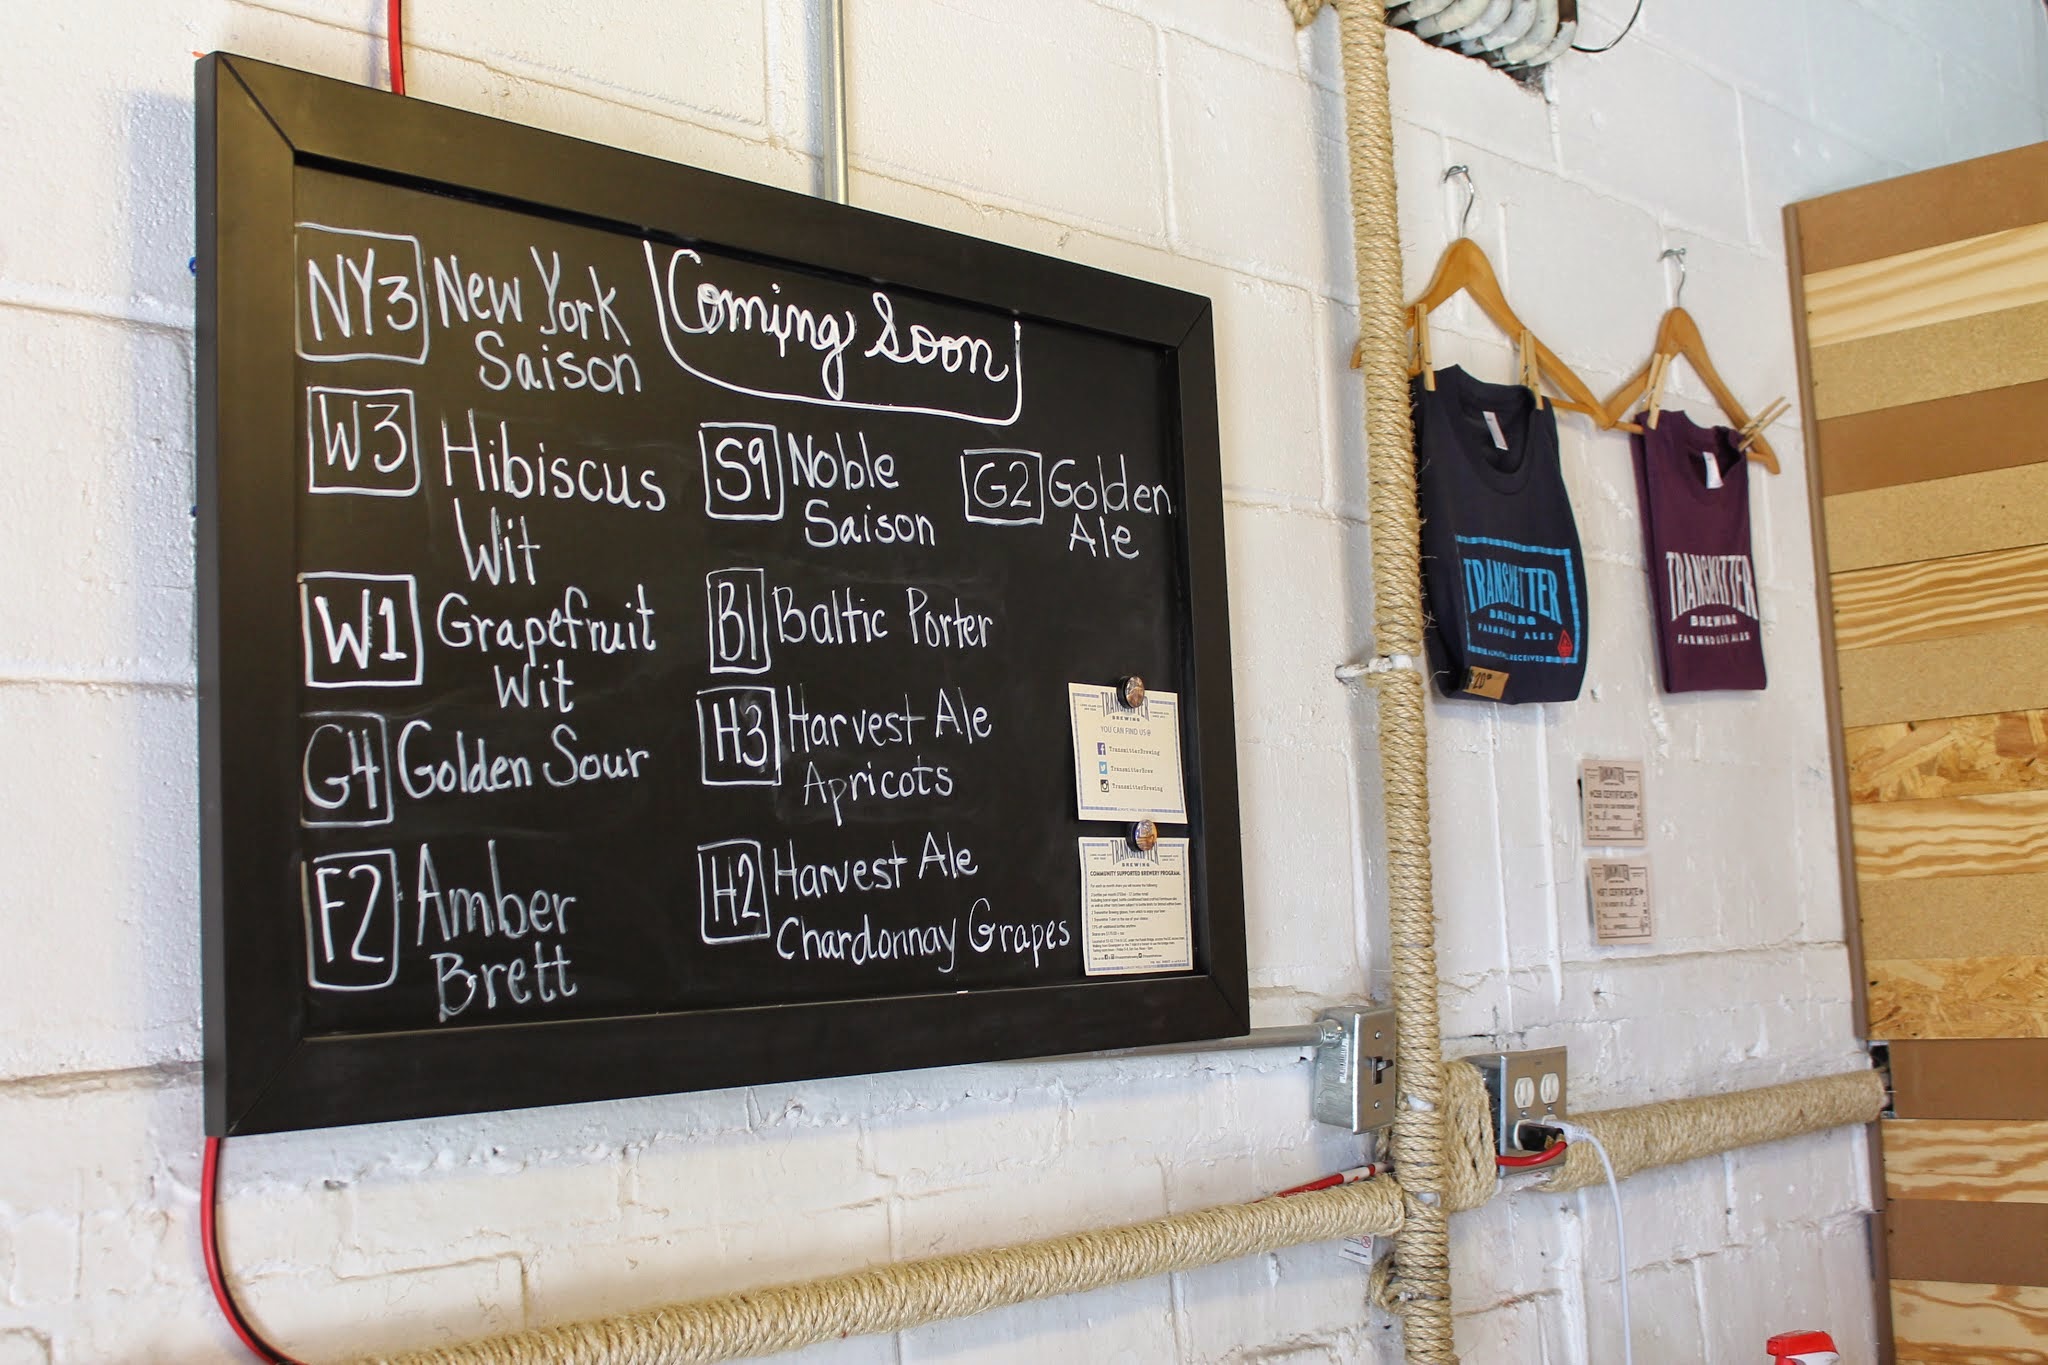 Coming Soon
NY3 New York
Saison
W3 Hibiscus
Wit
W1 Grapefruit
Wit
G4 Golden Sour
F2 Amber
Brett
S9 Noble
Saison
B1 Baltic Porter
H3 Harvest Ale
Apricots
H2 Harvest Ale
Chardonnay Grapes
G2 Golden
Ale
TRANSMITTER
BREWING
YOU CAN FIND US @
TransmitterBrewing
TransmitterBrew
TransmitterBrewing
TRANSMITTER
BREWING
COMMUNITY SUPPORTED BREWERY PROGRAM
TRANSMITTER
BREWING
FARMHOUSE ALES
RECEIVED
20
TRANSMITTER
BREWING
FARMHOUSE ALES
CERTIFICATE
CERTIFICATE